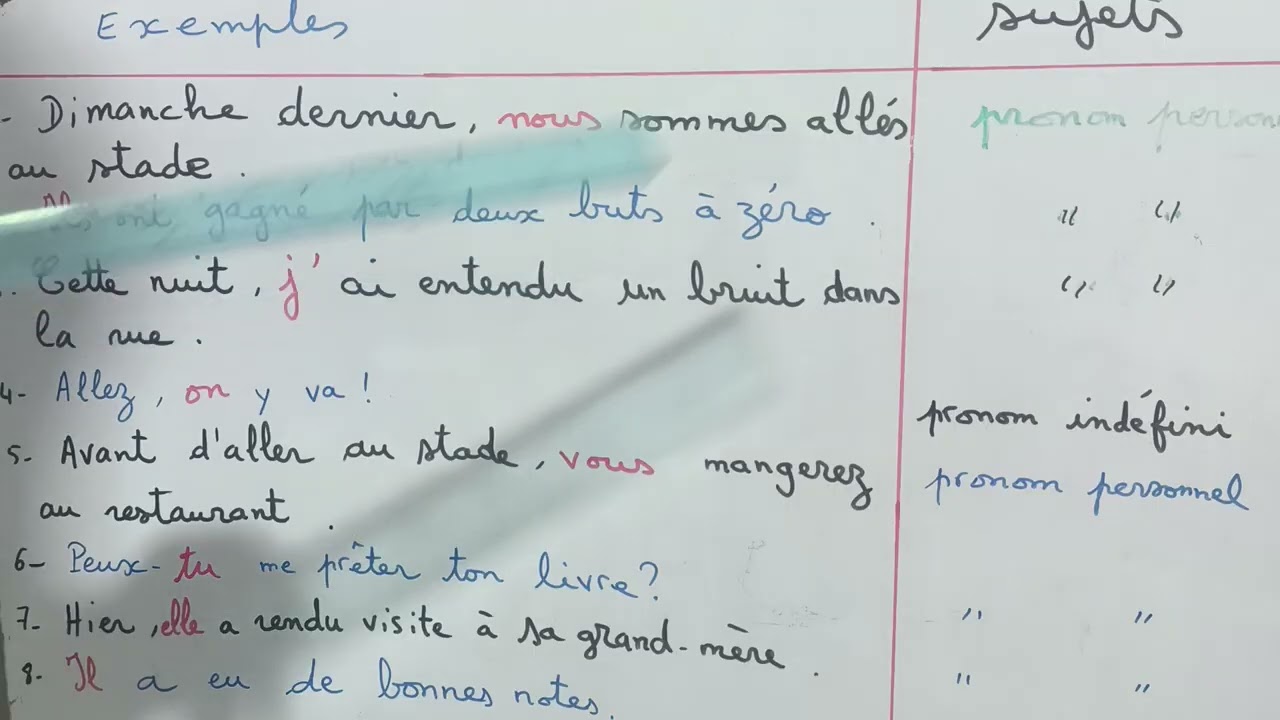 Exemples
sujets
- Dimanche dernier, nous sommes allés
pronom person
au stade.
ont gagné par deux buts à zéro.
" "
Cette nuit, j'ai entendu un bruit dans
" "
la rue.
4- Allez, on y va !
pronom indéfini
5- Avant d'aller au stade, vous mangerez
pronom personnel
au restaurant.
6- Peux-tu me prêter ton livre ?
7- Hier, elle a rendu visite à sa grand-mère.
" "
8- Il a eu de bonnes notes.
" "